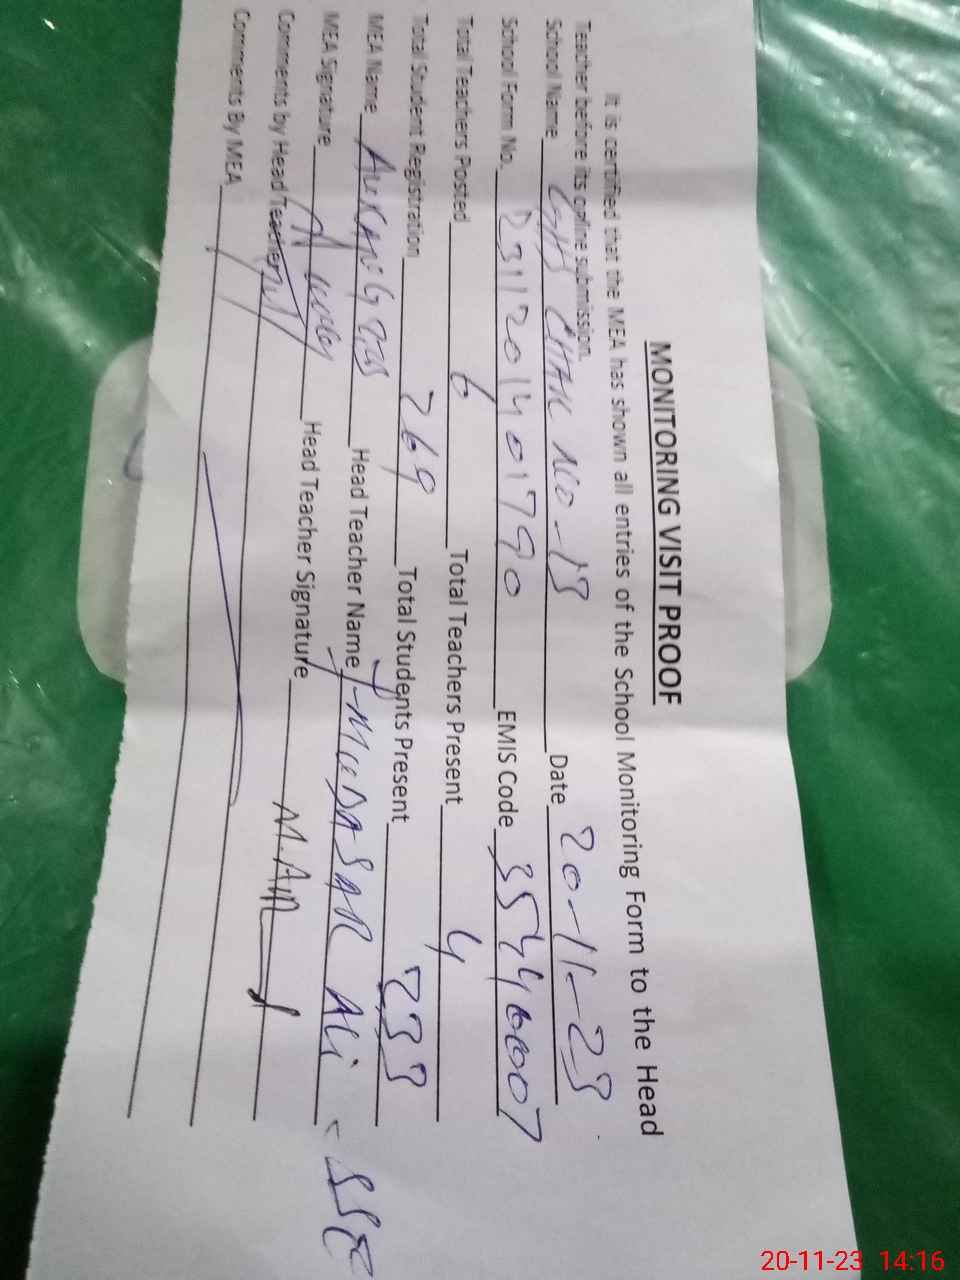 MONITORING VISIT PROOF
It is certified that the MEA has shown all entries of the School Monitoring Form to the Head
Teacher before its online submission.
School Name GHS CHAK NO-18 Date 20-11-23
School Form No. 2311201401790 EMIS Code 35440007
Total Teachers Posted 6 Total Teachers Present 4
Total Student Registration 269 Total Students Present 233
MEA Name Head Teacher Name MUDASAR ALI - SSE
MEA Signature Head Teacher Signature
Comments by Head Teacher
Comments By MEA
20-11-23 14:16